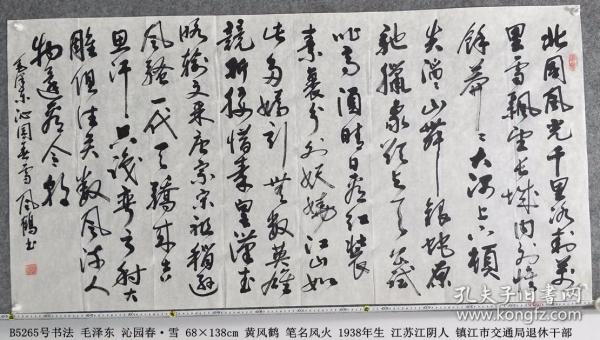 北国风光千里冰封万
里雪飘望长城内外惟
余莽々大河上下顿
失滔々山舞银蛇原
驰腊象欲与天公试
比高须晴日看红装
素裹分外妖娆江山如
此多娇引无数英雄
竞折腰惜秦皇汉武
略输文采唐宗宋祖稍逊
风骚一代天骄成吉
思汗只识弯弓射大
雕俱往矣数风流人
物还看今朝
毛泽东沁园春雪 风鹤书
孔夫子旧书网
B5265号书法 毛泽东 沁园春·雪 68×138cm 黄风鹤 笔名风火 1938年生 江苏江阴人 镇江市交通局退休干部